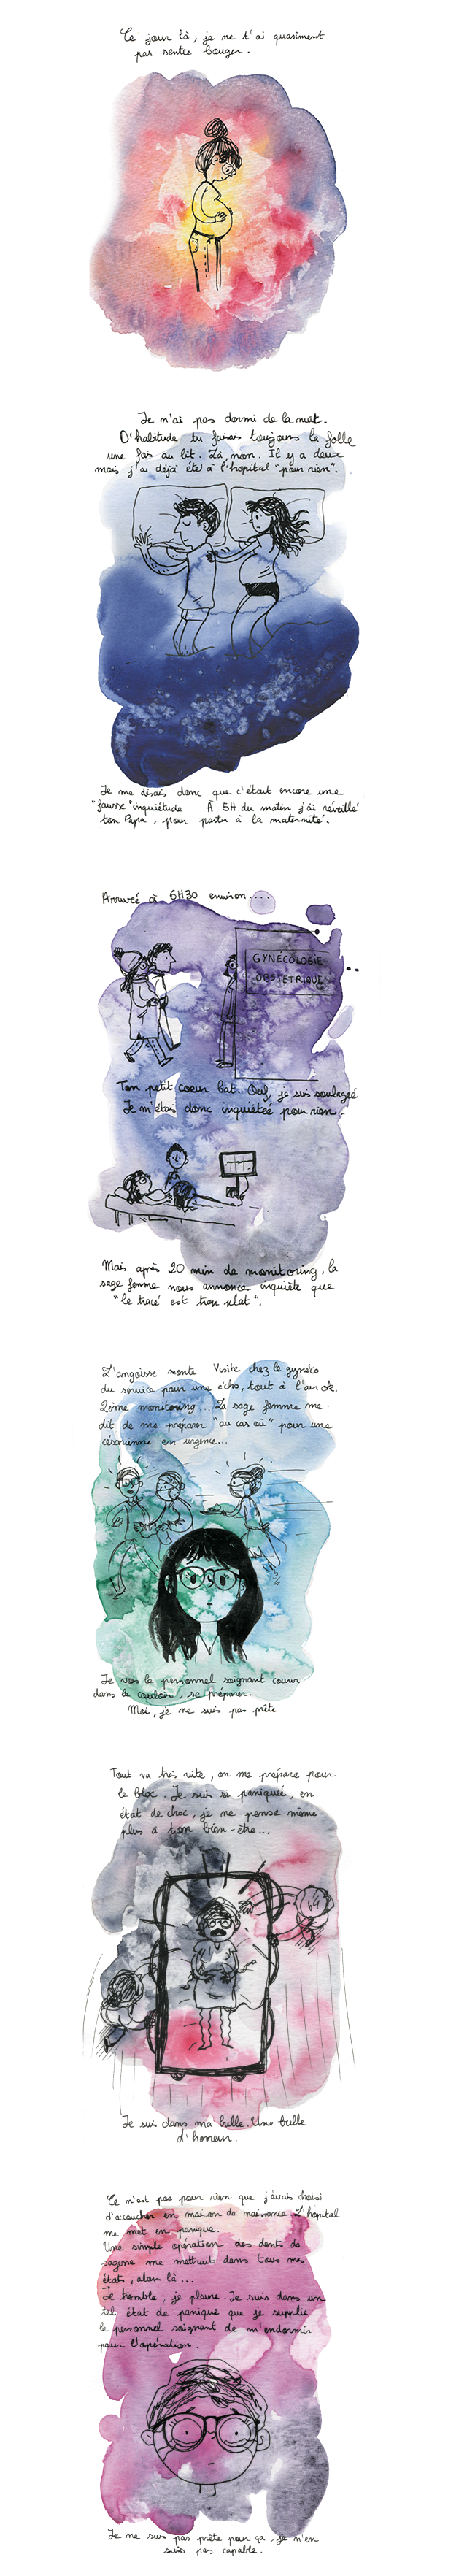 Ce jour là, je ne t'ai quasiment
pas sentie bouger.
Je n'ai pas dormi de la nuit.
D'habitude tu faisais toujours la folle
une fois au lit. Là, non. Il y a deux
mois j'ai déjà été à l'hopital "pour rien".
Je me disais donc que c'était encore une
"fausse" inquiétude. À 5H du matin j'ai réveillé
ton Papa, pour partir à la maternité.
Arrivée à 6H30 environ....
GYNECOLOGIE
OBSTETRIQUE
Ton petit coeur bat. Ouf, je suis soulagée
Je m'étais donc inquiétée pour rien...
Mais après 20 min de monitoring, la
sage femme nous annonce inquiète que
"le tracé est trop plat".
L'angoisse monte Visite chez le gynéco
du service pour une écho, tout à l'air ok.
2ème monitoring... La sage femme me
dit de me préparer "au cas où" pour une
césarienne en urgence...
Je vois le personnel soignant courir
dans le couloir, se préparer.
Moi, je ne suis pas prête
Tout va très vite, on me prépare pour
le bloc. Je suis si paniquée, en
état de choc, je ne pense même
plus à ton bien-être...
Je suis dans ma bulle. Une bulle
d'horreur.
Ce n'est pas pour rien que j'avais choisi
d'accoucher en maison de naissance. L'hopital
me met en panique.
Une simple opération des dents de
sagesse me mettrait dans tous mes
états, alors là...
Je tremble, je pleure. Je suis dans un
tel état de panique que je supplie
le personnel soignant de m'endormir
pour l'opération.
Je ne suis pas prête pour ça, je n'en
suis pas capable.